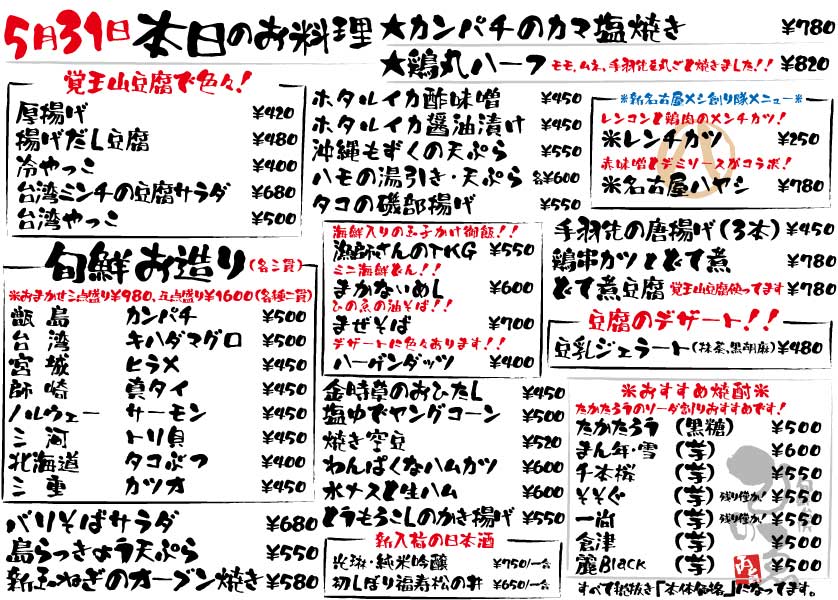 5月31日 本日のお料理
★カンパチのカマ塩焼き ¥780
★鶏丸ハーフ モモ、ムネ、手羽先を丸ごと焼きました!! ¥820
覚王山豆腐で色々!
厚揚げ ¥420
揚げだし豆腐 ¥480
冷やっこ ¥400
台湾ミンチの豆腐サラダ ¥680
台湾やっこ ¥500
旬鮮お造り(各二貫)
※おまかせ三点盛り¥980、五点盛り¥1600(各種二貫)
甑島 カンパチ ¥500
台湾 キハダマグロ ¥500
宮城 ヒラメ ¥450
師崎 真タイ ¥450
ノルウェー サーモン ¥450
三河 トリ貝 ¥450
北海道 タコぶつ ¥400
三重 カツオ ¥450
バリそばサラダ ¥680
島らっきょう天ぷら ¥550
新玉ねぎのオーブン焼き ¥580
ホタルイカ酢味噌 ¥450
ホタルイカ醤油漬け ¥450
沖縄もずくの天ぷら ¥550
ハモの湯引き・天ぷら 各¥600
タコの磯部揚げ ¥550
海鮮入りの玉子かけ御飯!!
漁師さんのTKG ¥550
ミニ海鮮どん!!
まかないめし ¥600
ひの魚の油そば!!
まぜそば ¥700
デザートに色々あります!!
ハーゲンダッツ ¥400
金時草のおひたし ¥450
塩ゆでヤングコーン ¥500
焼き空豆 ¥520
わんぱくなハムカツ ¥600
水ナスと生ハム ¥600
とうもろこしのかき揚げ ¥550
新入荷の日本酒
光琳・純米吟醸 ¥750/一合
初しぼり福寿松の井 ¥650/一合
※新名古屋メシ創り隊メニュー※
レンコンと鶏肉のメンチカツ!
※レンチカツ ¥250
赤味噌とデミソースがコラボ!
※名古屋ハヤシ ¥780
手羽先の唐揚げ(3本) ¥450
鶏串カツとどて煮 ¥780
どて煮豆腐 覚王山豆腐使ってます ¥780
豆腐のデザート!!
豆乳ジェラート(抹茶,黒胡麻) ¥480
※おすすめ焼酎※
たかたろうのソーダ割りおすすめです!
たかたろう (黒糖) ¥500
まん年・雪 (芋) ¥600
千本桜 (芋) ¥550
そそぐ (芋) 残り僅か! ¥550
一尚 (芋) 残り僅か! ¥550
倉津 (芋) ¥500
麗Black (芋) ¥500
すべて税抜き「本体価格」になってます。